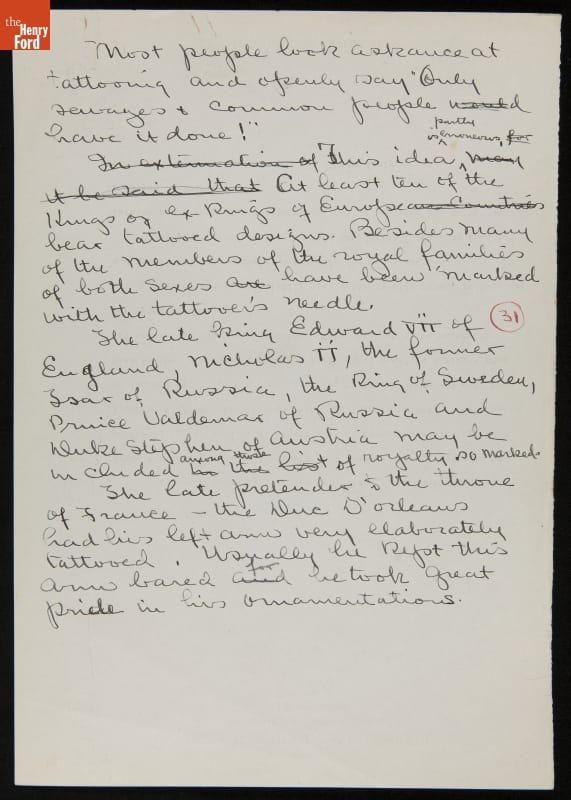 the
Henry
Ford
Most people look askance at
tattooing and openly say "Only
sevages & common people would
have it done!"
partly
is erroneous, for
In extenuation of This idea, may
it be said that At least ten of the
Kings or ex Kings of European Countries
bear tattooed designs. Besides many
of the members of the royal families
of both sexes are have been marked
with the tattooer's needle.
31
The late King Edward VII of
England, Nicholas II, the former
Tsar of Russia, the King of Sweden,
Prince Valdemar of Russia and
Duke Stephen of Austria may be
among those
included in the list of royalty so marked.
The late pretender to the throne
of France - the Duc D'orleans
had his left arm very elaborately
tattooed. Usually he kept this
for
arm bared and he took great
pride in his ornamentations.